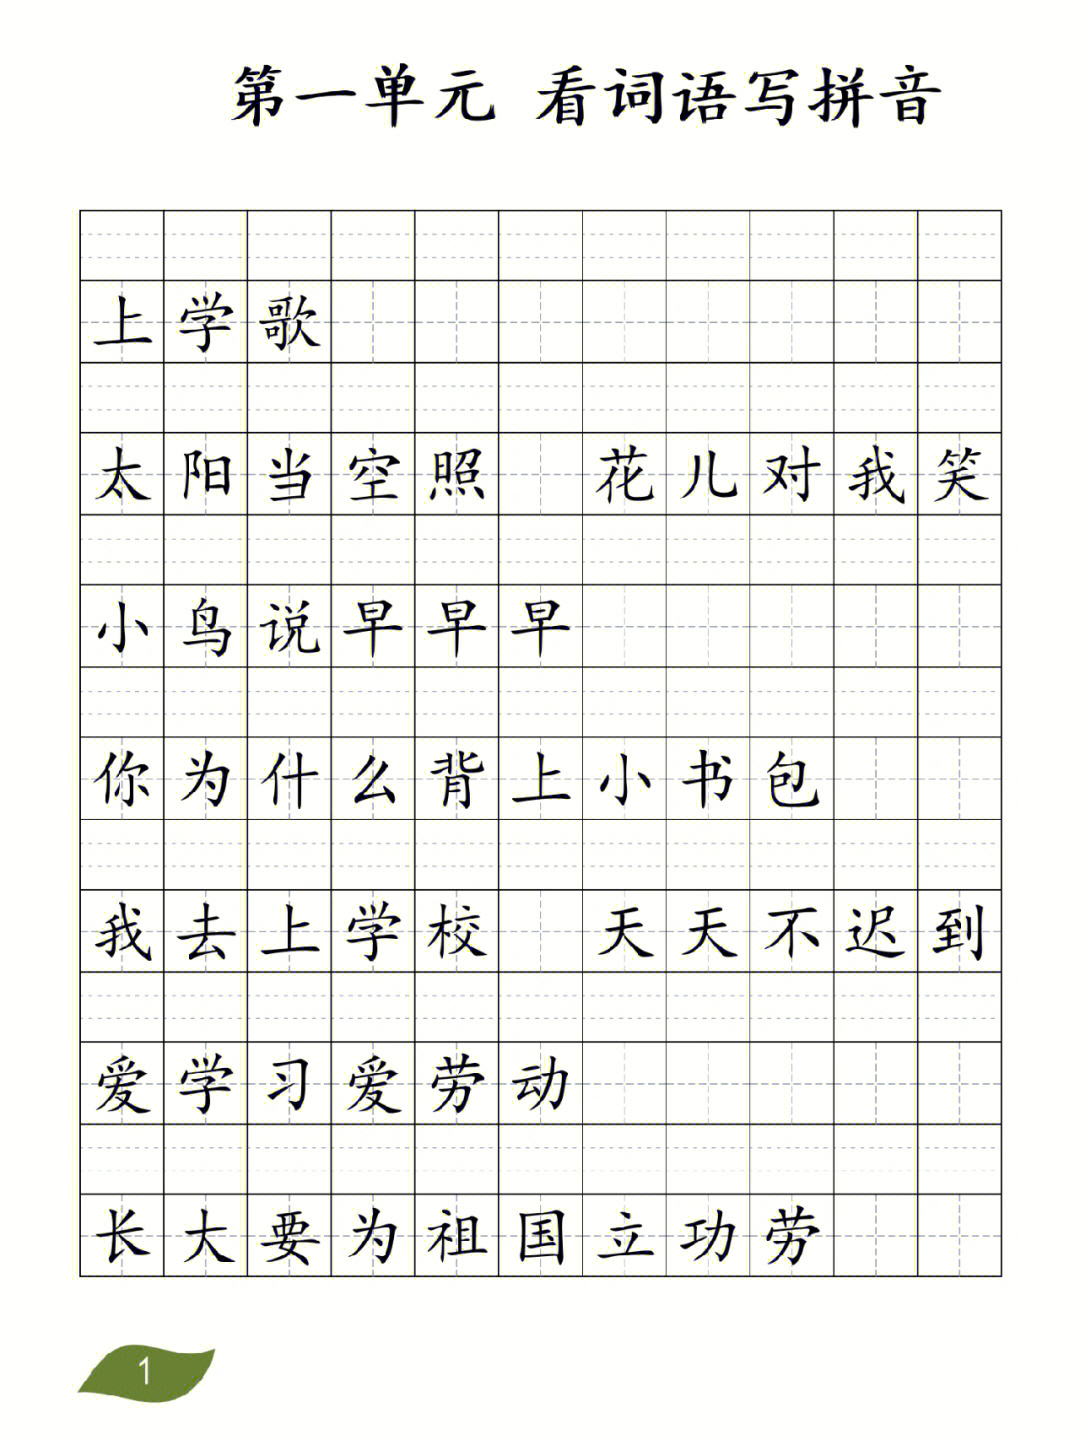 第一单元 看词语写拼音
上学歌
太阳当空照 花儿对我笑
小鸟说早早早
你为什么背上小书包
我去上学校 天天不迟到
爱学习爱劳动
长大要为祖国立功劳
1